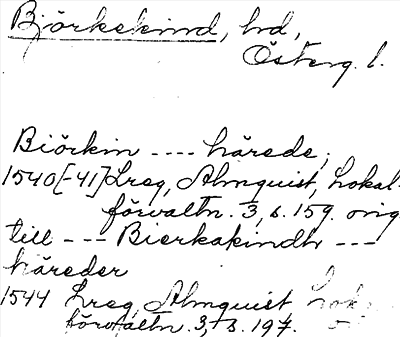 Björkekind, hd,
Österg. l.
Biörkin ---- härede;
1540[-41] Lreg, Almquist, Lokal-
förvaltn. 3, s. 159. orig
till --- Bierkakindh ---
häreder
1544 Lreg, Almquist Lok
förvaltn. 3, s. 197.